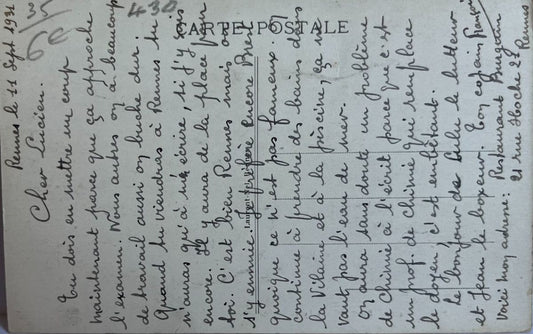 CARTE POSTALE
430
35
6€
Rennes le 11 Sept 1931
Cher Lucien.
Tu dois en mettre un coup
maintenant parce que ça approche
l'examen. Nous autres on a beaucoup
de travail aussi on buche dur.
Quand tu viendras à Rennes tu
n'auras qu'à m'écrire, si j'y suis
encore. Il y aura de la place pour
toi. C'est bien Rennes mais on
s'y ennuie je préfère encore Brest
quoique ce n'est pas fameux. On
continue à prendre des bains dans
la Vilaine et à la piscine, ça ne
vaut pas l'eau de mer.
On aura sans doute un problème
de chimie à l'écrit parce que c'est
un prof. de chimie qui remplace
le doyen, c'est embêtant.
Le bonjour de Lulu le lutteur
et Jean le boxeur. Ton copain
Voici mon adresse: Restaurant
21 rue Hoche 21 Rennes